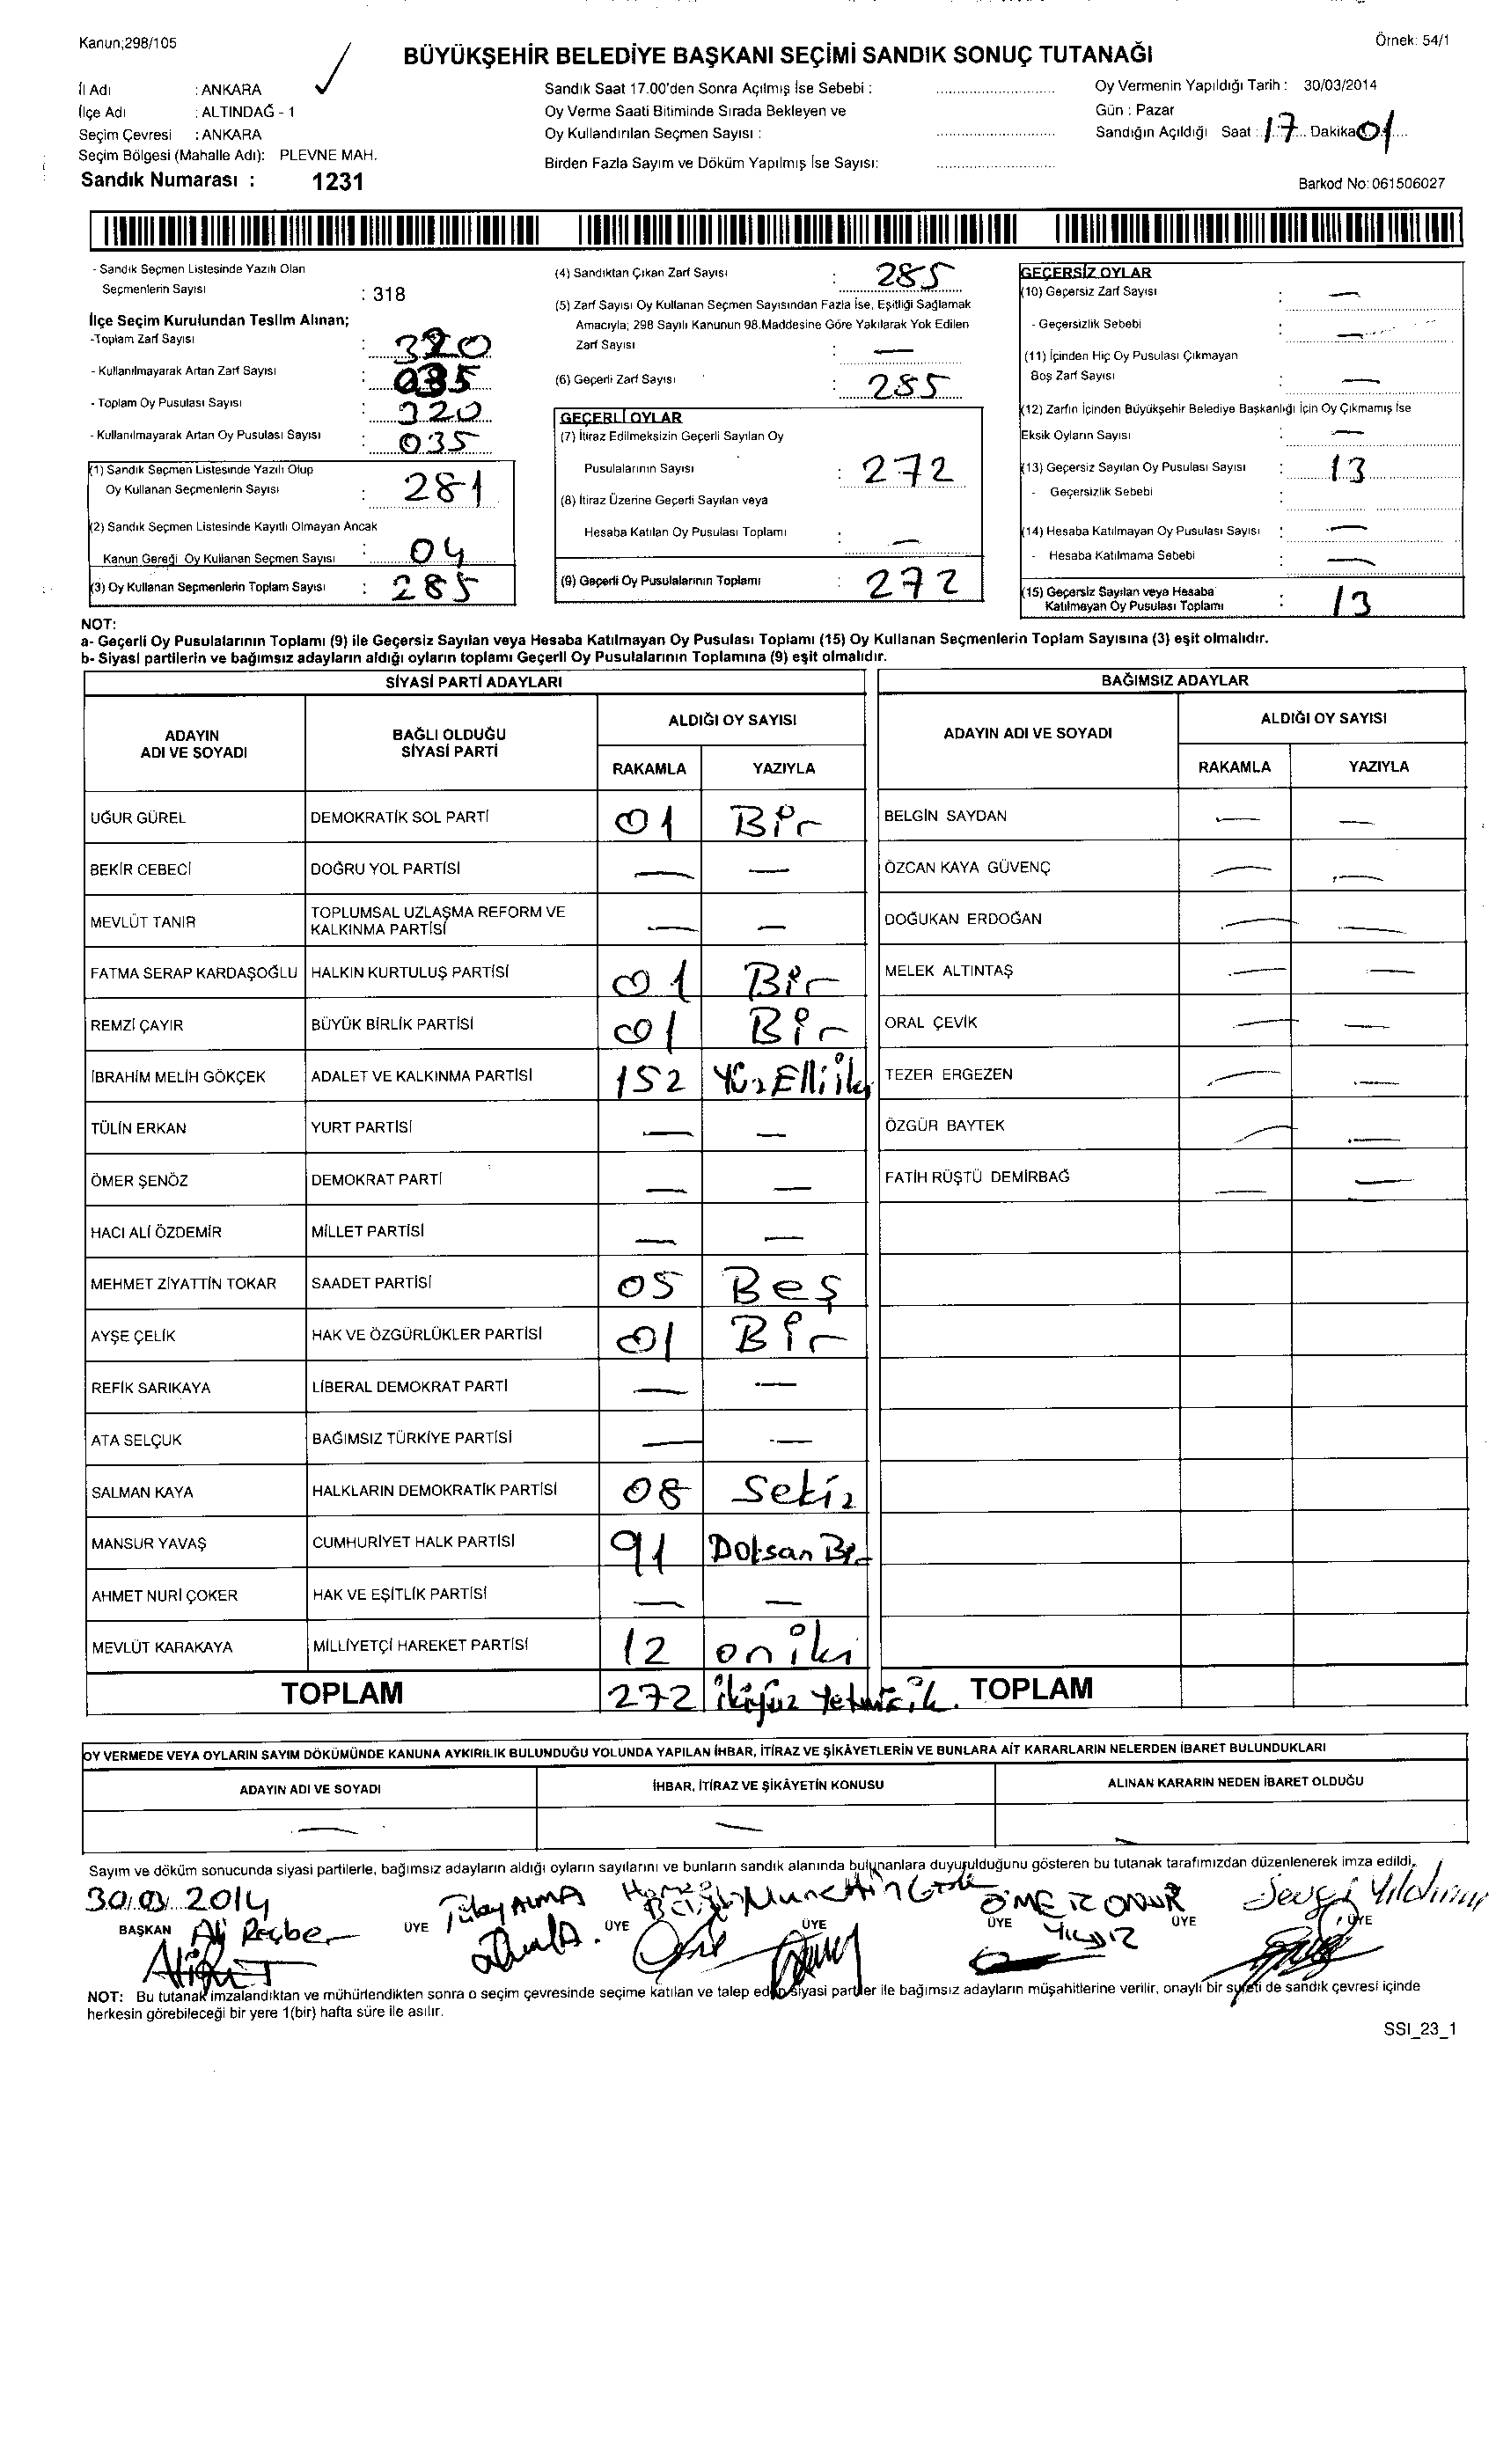 Kanun;298/105
Örnek: 54/1
BÜYÜKŞEHİR BELEDİYE BAŞKANI SEÇİMİ SANDIK SONUÇ TUTANAĞI
İl Adı : ANKARA
İlçe Adı : ALTINDAĞ - 1
Seçim Çevresi : ANKARA
Seçim Bölgesi (Mahalle Adı): PLEVNE MAH.
Sandık Numarası : 1231
Sandık Saat 17.00'den Sonra Açılmış İse Sebebi :
Oy Verme Saati Bitiminde Sırada Bekleyen ve
Oy Kullandırılan Seçmen Sayısı :
Birden Fazla Sayım ve Döküm Yapılmış İse Sayısı:
Oy Vermenin Yapıldığı Tarih : 30/03/2014
Gün : Pazar
Sandığın Açıldığı Saat : 17 Dakika 01
Barkod No: 061506027
- Sandık Seçmen Listesinde Yazılı Olan
Seçmenlerin Sayısı : 318
İlçe Seçim Kurulundan Teslim Alınan;
-Toplam Zarf Sayısı : 320
- Kullanılmayarak Artan Zarf Sayısı : 035
- Toplam Oy Pusulası Sayısı : 320
- Kullanılmayarak Artan Oy Pusulası Sayısı : 035
(1) Sandık Seçmen Listesinde Yazılı Olup
Oy Kullanan Seçmenlerin Sayısı : 281
(2) Sandık Seçmen Listesinde Kayıtlı Olmayan Ancak
Kanun Gereği Oy Kullanan Seçmen Sayısı : 04
(3) Oy Kullanan Seçmenlerin Toplam Sayısı : 285
(4) Sandıktan Çıkan Zarf Sayısı : 285
(5) Zarf Sayısı Oy Kullanan Seçmen Sayısından Fazla İse, Eşitliği Sağlamak
Amacıyla; 298 Sayılı Kanunun 98.Maddesine Göre Yakılarak Yok Edilen
Zarf Sayısı : —
(6) Geçerli Zarf Sayısı : 285
GEÇERLİ OYLAR
(7) İtiraz Edilmeksizin Geçerli Sayılan Oy
Pusulalarının Sayısı : 272
(8) İtiraz Üzerine Geçerli Sayılan veya
Hesaba Katılan Oy Pusulası Toplamı : —
(9) Geçerli Oy Pusulalarının Toplamı : 272
GEÇERSİZ OYLAR
(10) Geçersiz Zarf Sayısı : —
- Geçersizlik Sebebi : —
(11) İçinden Hiç Oy Pusulası Çıkmayan
Boş Zarf Sayısı : —
(12) Zarfın İçinden Büyükşehir Belediye Başkanlığı İçin Oy Çıkmamış İse
Eksik Oyların Sayısı : —
(13) Geçersiz Sayılan Oy Pusulası Sayısı : 13
- Geçersizlik Sebebi :
(14) Hesaba Katılmayan Oy Pusulası Sayısı : —
- Hesaba Katılmama Sebebi : —
(15) Geçersiz Sayılan veya Hesaba
Katılmayan Oy Pusulası Toplamı : 13
NOT:
a- Geçerli Oy Pusulalarının Toplamı (9) ile Geçersiz Sayılan veya Hesaba Katılmayan Oy Pusulası Toplamı (15) Oy Kullanan Seçmenlerin Toplam Sayısına (3) eşit olmalıdır.
b- Siyasi partilerin ve bağımsız adayların aldığı oyların toplamı Geçerli Oy Pusulalarının Toplamına (9) eşit olmalıdır.
SİYASİ PARTİ ADAYLARI
BAĞIMSIZ ADAYLAR
ADAYIN ADI VE SOYADI
BAĞLI OLDUĞU SİYASİ PARTİ
ALDIĞI OY SAYISI
RAKAMLA YAZIYLA
ADAYIN ADI VE SOYADI
ALDIĞI OY SAYISI
RAKAMLA YAZIYLA
UĞUR GÜREL DEMOKRATİK SOL PARTİ 01 Bir BELGİN SAYDAN — —
BEKİR CEBECİ DOĞRU YOL PARTİSİ — — ÖZCAN KAYA GÜVENÇ — —
MEVLÜT TANIR TOPLUMSAL UZLAŞMA REFORM VE KALKINMA PARTİSİ — — DOĞUKAN ERDOĞAN — —
FATMA SERAP KARDAŞOĞLU HALKIN KURTULUŞ PARTİSİ 01 Bir MELEK ALTINTAŞ — —
REMZİ ÇAYIR BÜYÜK BİRLİK PARTİSİ 01 Bir ORAL ÇEVİK — —
İBRAHİM MELİH GÖKÇEK ADALET VE KALKINMA PARTİSİ 152 Yüz Elli iki TEZER ERGEZEN — —
TÜLİN ERKAN YURT PARTİSİ — — ÖZGÜR BAYTEK — —
ÖMER ŞENÖZ DEMOKRAT PARTİ — — FATİH RÜŞTÜ DEMİRBAĞ — —
HACI ALİ ÖZDEMİR MİLLET PARTİSİ — —
MEHMET ZİYATTİN TOKAR SAADET PARTİSİ 05 Beş
AYŞE ÇELİK HAK VE ÖZGÜRLÜKLER PARTİSİ 01 Bir
REFİK SARIKAYA LİBERAL DEMOKRAT PARTİ — —
ATA SELÇUK BAĞIMSIZ TÜRKİYE PARTİSİ — —
SALMAN KAYA HALKLARIN DEMOKRATİK PARTİSİ 08 Sekiz
MANSUR YAVAŞ CUMHURİYET HALK PARTİSİ 91 Doksan Bir
AHMET NURİ ÇOKER HAK VE EŞİTLİK PARTİSİ — —
MEVLÜT KARAKAYA MİLLİYETÇİ HAREKET PARTİSİ 12 oniki
TOPLAM 272 TOPLAM
OY VERMEDE VEYA OYLARIN SAYIM DÖKÜMÜNDE KANUNA AYKIRILIK BULUNDUĞU YOLUNDA YAPILAN İHBAR, İTİRAZ VE ŞİKÂYETLERİN VE BUNLARA AİT KARARLARIN NELERDEN İBARET BULUNDUKLARI
ADAYIN ADI VE SOYADI İHBAR, İTİRAZ VE ŞİKÂYETİN KONUSU ALINAN KARARIN NEDEN İBARET OLDUĞU
— — —
Sayım ve döküm sonucunda siyasi partilerle, bağımsız adayların aldığı oyların sayılarını ve bunların sandık alanında bulunanlara duyurulduğunu gösteren bu tutanak tarafımızdan düzenlenerek imza edildi.
30.03.2014
BAŞKAN Ali ÜYE Tülay ÜYE ÜYE ÜYE ÖMER ONUR YILDIZ ÜYE Sevgi Yıldırım ÜYE
NOT: Bu tutanak imzalandıktan ve mühürlendikten sonra o seçim çevresinde seçime katılan ve talep eden siyasi partiler ile bağımsız adayların müşahitlerine verilir, onaylı bir sureti de sandık çevresi içinde
herkesin görebileceği bir yere 1(bir) hafta süre ile asılır.
SSI_23_1